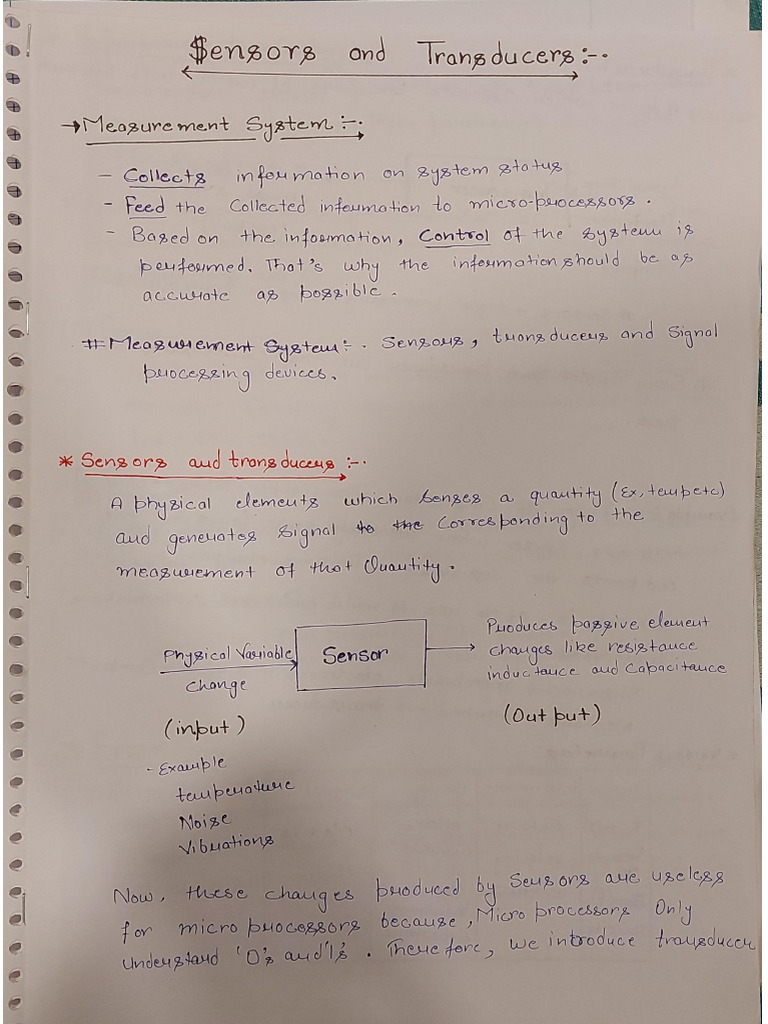 Sensors and Transducers:-.
→ Measurement System :-.
- Collects information on system status
- Feed the Collected information to micro-processors.
- Based on the information, Control of the system is
performed. That's why the information should be as
accurate as possible.
# Measurement System:-. Sensors, transducers and Signal
processing devices.
* Sensors and transducers :-.
A physical elements which senses a quantity (Ex, temp etc)
and generates signal to the Corresponding to the
measurement of that Quantity.
Physical Variable
Change
(input)
Sensor
Produces passive element
changes like resistance
inductance and Capacitance
(Output)
- Example
temperature
Noise
Vibrations
Now, these changes produced by Sensors are useless
for micro processors because, Micro processors Only
Understand '0's and '1's. Therefore, we introduce transducer